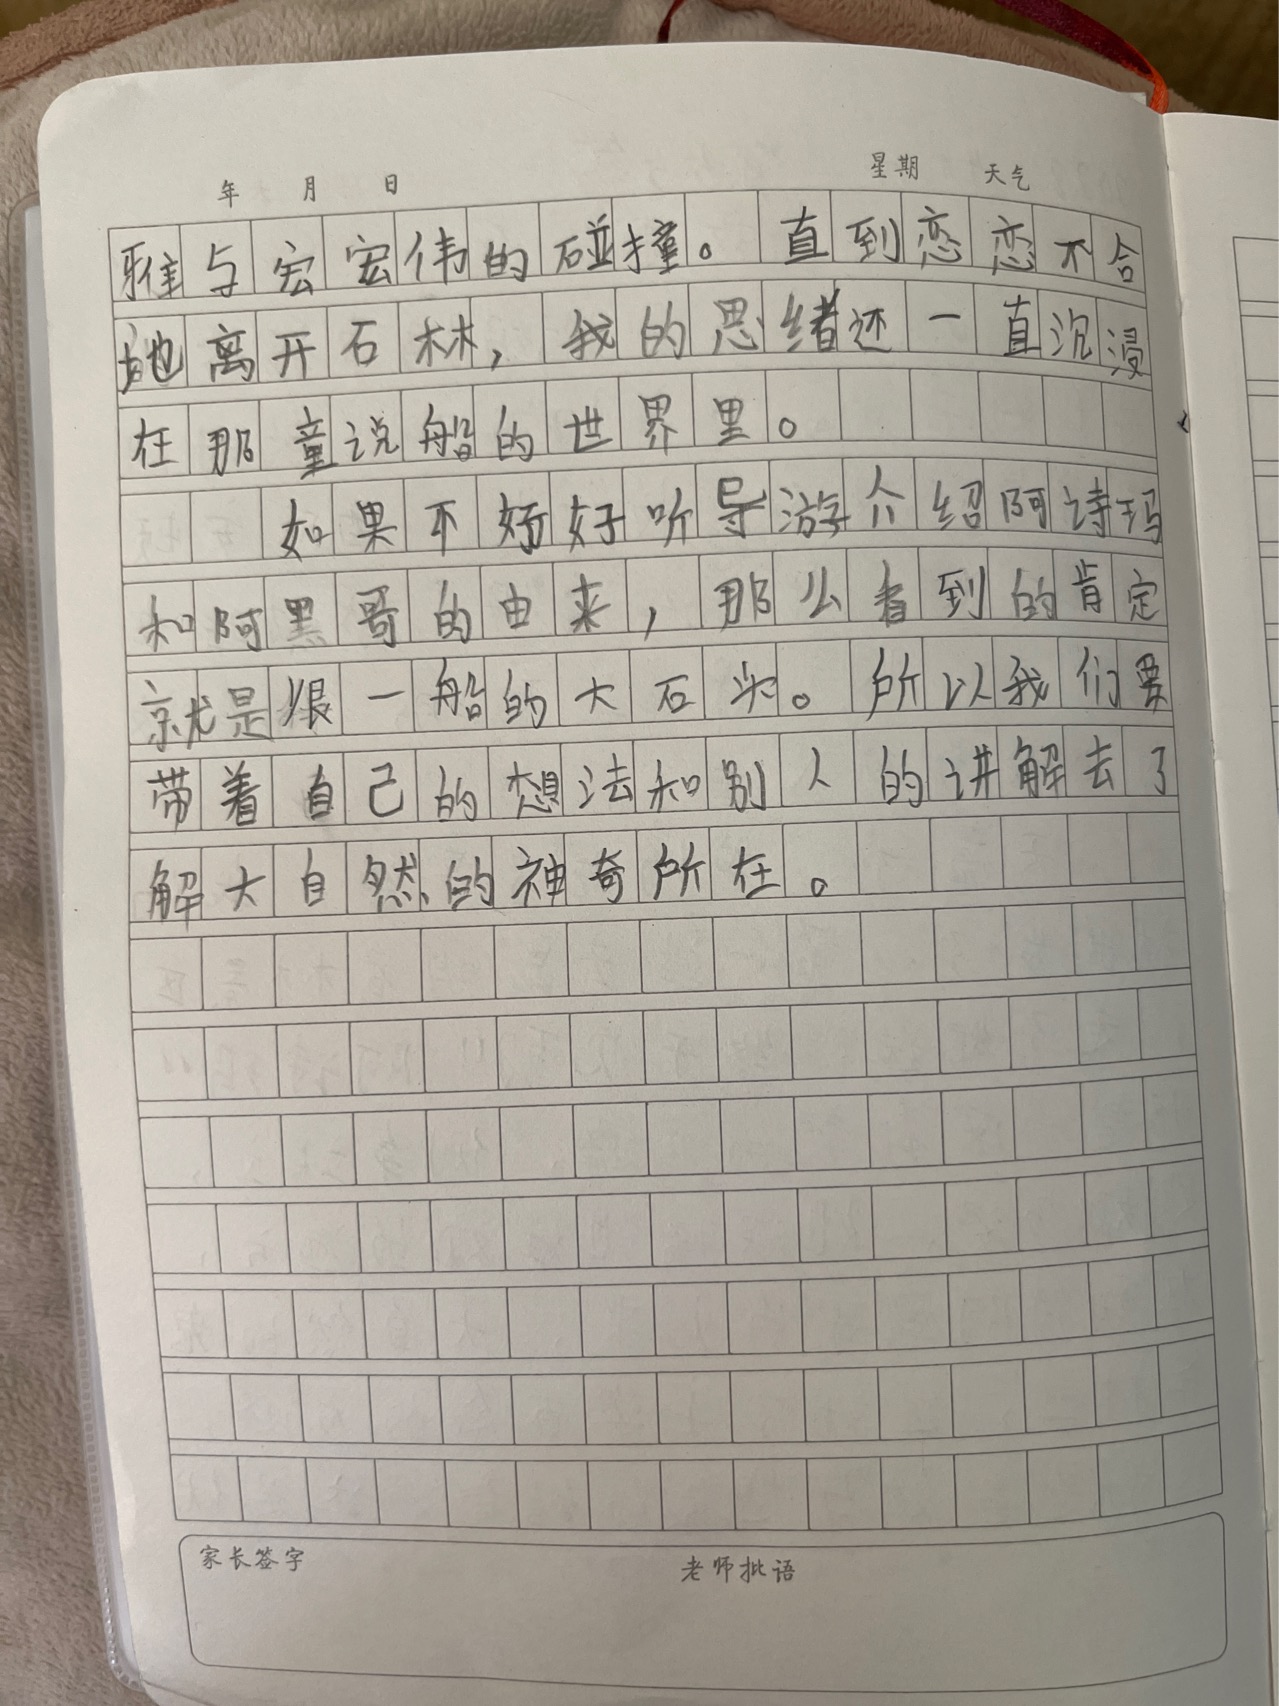 年 月 日 星期 天气
雅与宏宏伟的碰撞。 直到恋恋不合
地离开石林，我的思绪还一直沉浸
在那童说船的世界里。
如果不好好听导游介绍阿诗玛
和阿黑哥的由来，那么看到的肯定
就是狠一船的大石头。所以我们要
带着自己的想法和别人的讲解去了
解大自然的神奇所在。
家长签字 老师批语